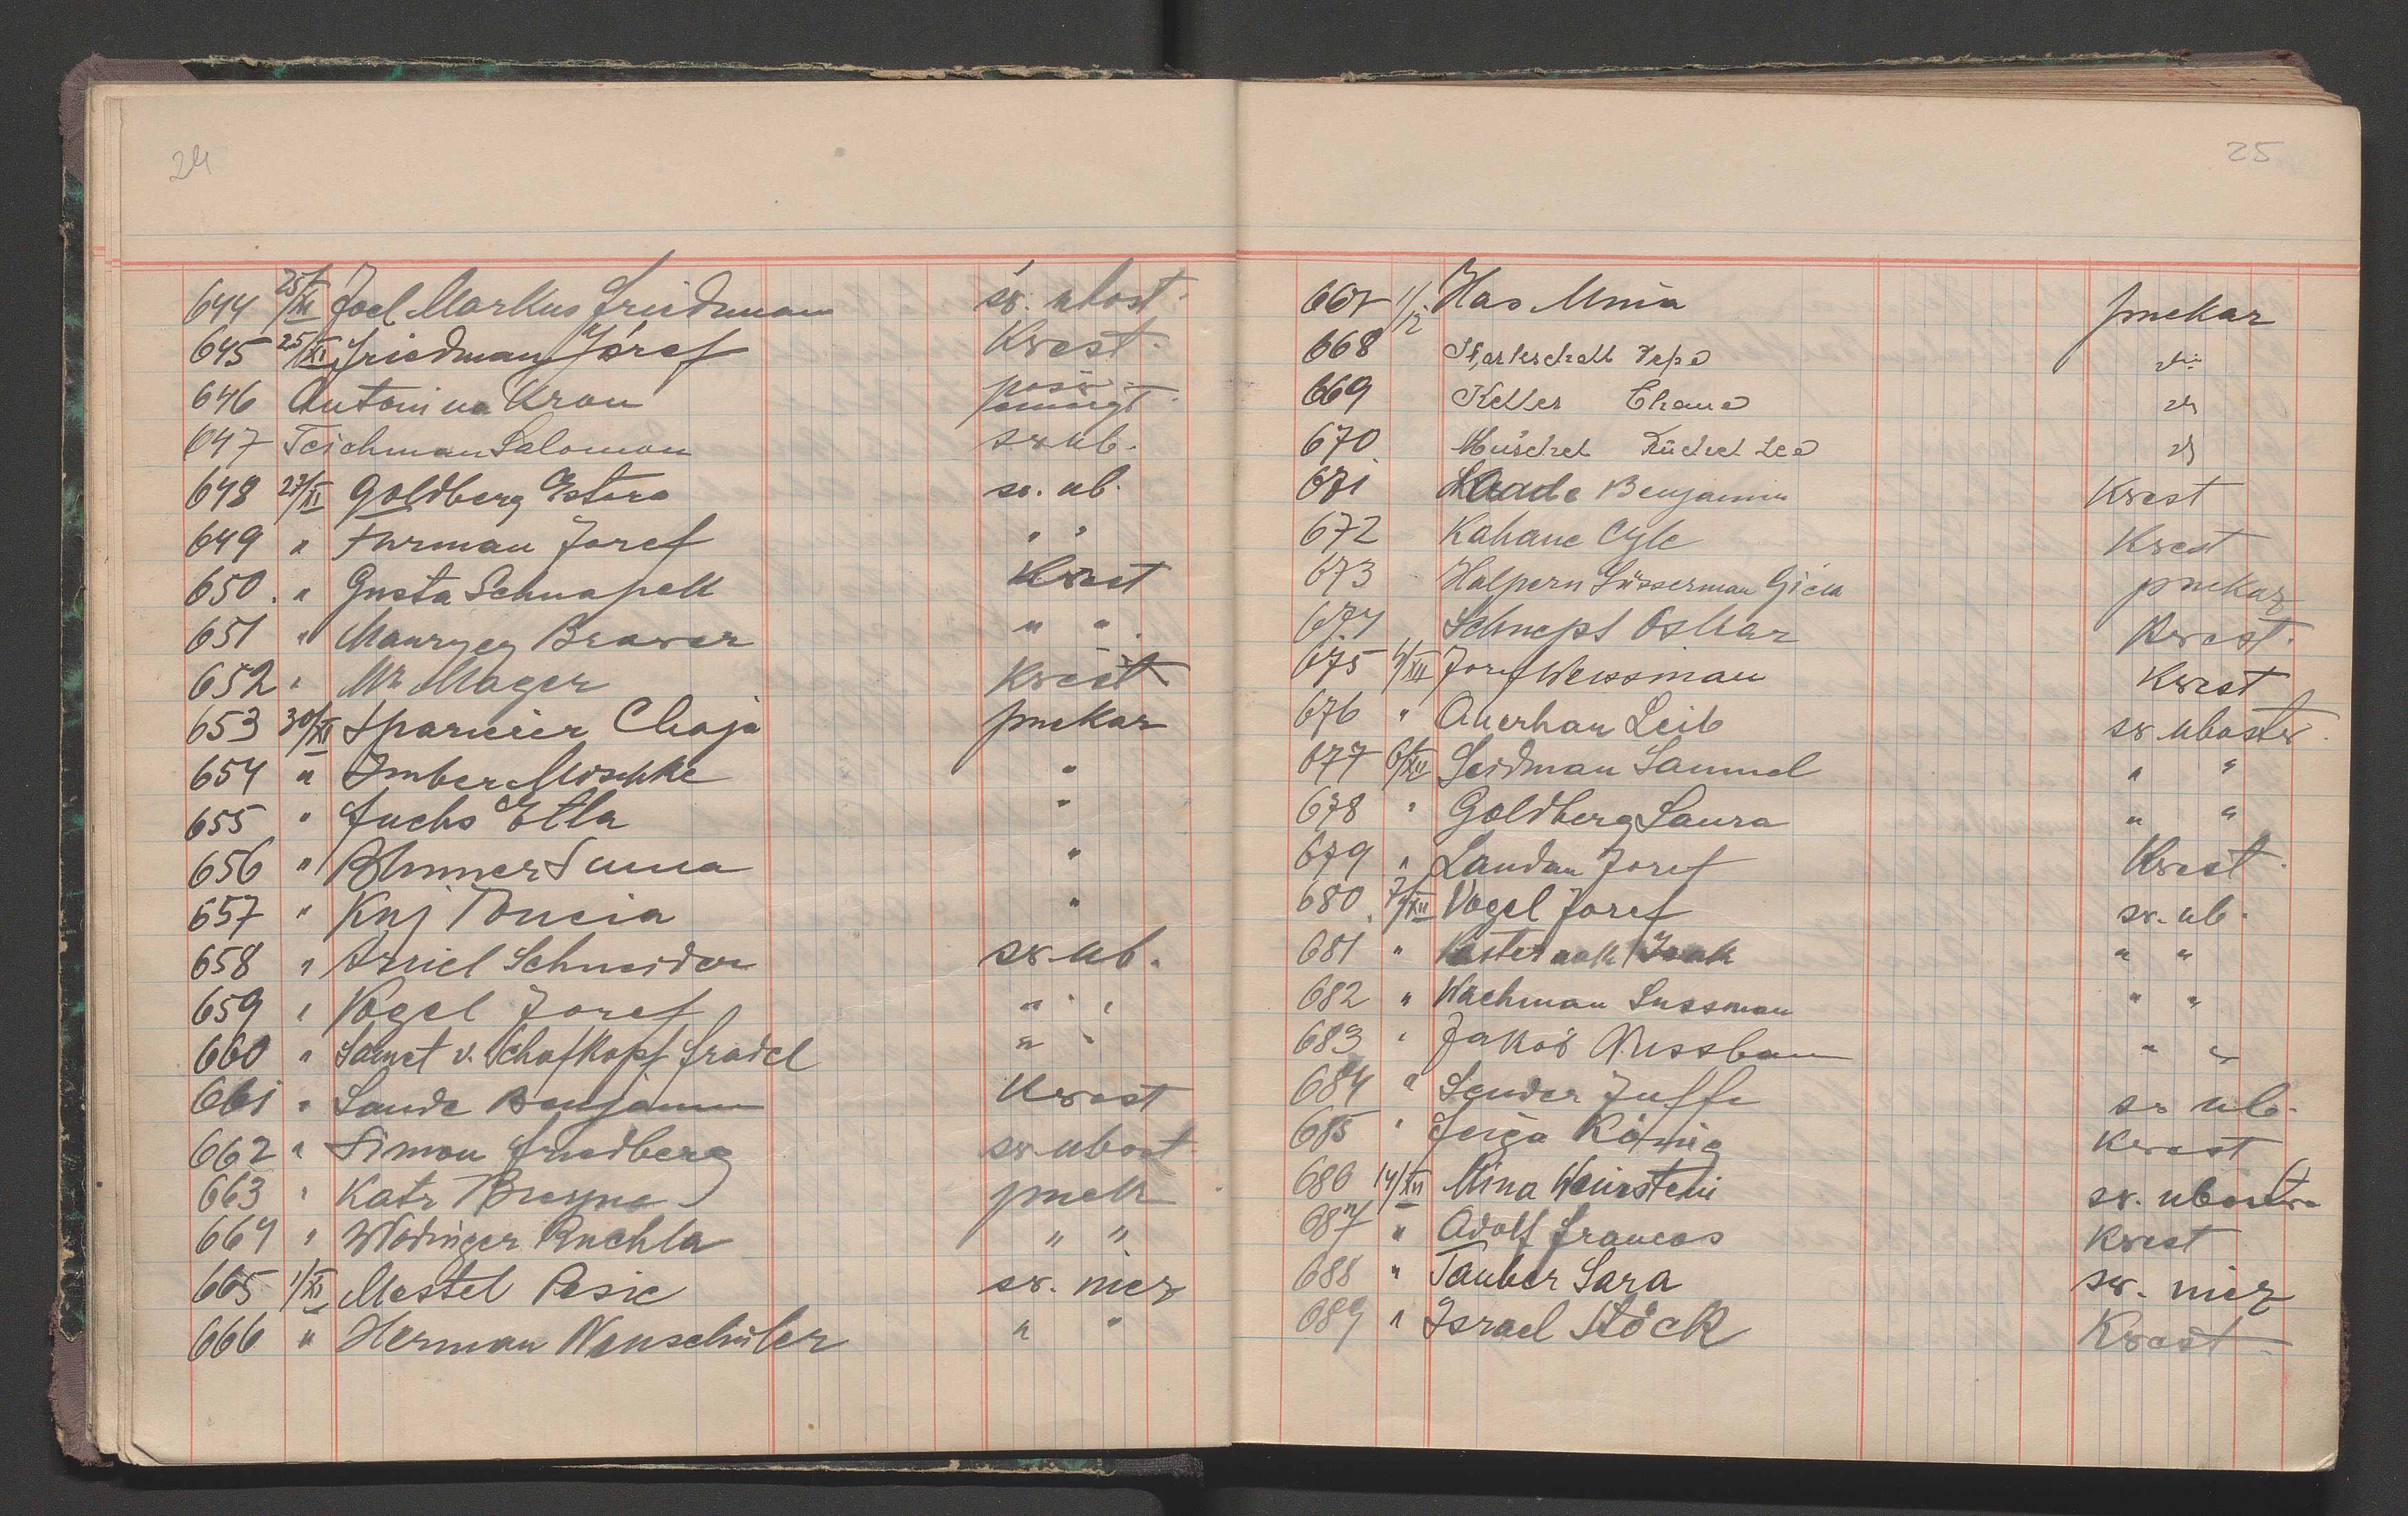 24
644 25/XI Joel Markus Friedman św. ubost.
645 25/XI Friedman Józef Kwest.
646 Antonina Kron pośw.
647 Teichman Salomon św ub.
648 27/XI Goldberg Estera św. ub.
649 " Furman Józef " "
650. " Gusta Schnapek Kwest
651 " Maurycy Brawer " "
652 " Mager Kwest
653 30/XI Sparnier Chaja puekar
654 " Imber Moschke "
655 " Fuchs Etla "
656 " Blumer "
657 " Knj Toncia "
658 " Arniel Schneider św. ub.
659 " Vogel Josef " "
660 " Samet v. Schafkopf Fradel " "
661 " Lande Benjamin Kwest
662 " Simon Friedberg św. ubost
663 " Katz puek
664 " Wlodinger Ruchla " "
665 1/XI Mestel Pesie św. niez
666 " Herman Neuschüler " "
25
667 1/12 Has Mina puekar
668
669 Keller Chana
670 Ruchel Lea
671 Laude Benjamin Kwest
672 Kahane Cyle Kwest
673 Halpern Süsserman Gicia puekar
674 Schnept Oskar Kwest.
675 4/XII Josef Weissman Kwest
676 " Auerhan Leib św. ubostw.
677 6/XII Seidman Samuel " "
678 " Goldberg Laura " "
679 " Landau Josef Kwest.
680. 7/XII Vogel Josef św. ub.
681 " Pasternak Izak " "
682 " Wachman Sussman " "
683 " Jakób Nussbaum " "
684 " Sender Juffe św ub.
685 " Feiga König Kwest
686 14/XII Mina Weinstein św. ubostw.
687 " Adolf Francos Kwest
688 " Tauber Sara św. niez
689 " Israel Stöck Kwest